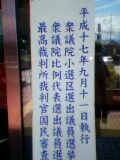 平成十七年九月十一日執行
衆議院小選挙区選出議員選挙
衆議院比例代表選出議員選
最高裁判所裁判官国民審査